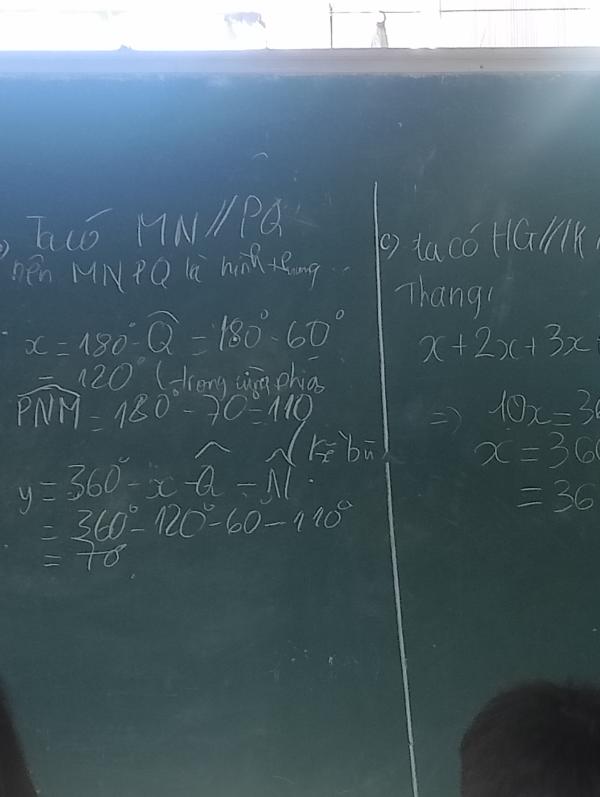 Ta có MN//PQ
nên MNPQ là hình thang
x = 180° - Q̂ = 180° - 60°
= 120° (trong cùng phía
P̂NM = 180° - 70 = 110
(kề bù
y = 360° - x - Q̂ - N̂
= 360° - 120° - 60 - 110°
= 70
c) ta có HG//IK
Thang
x + 2x + 3x
=> 10x = 36
x = 360
= 36